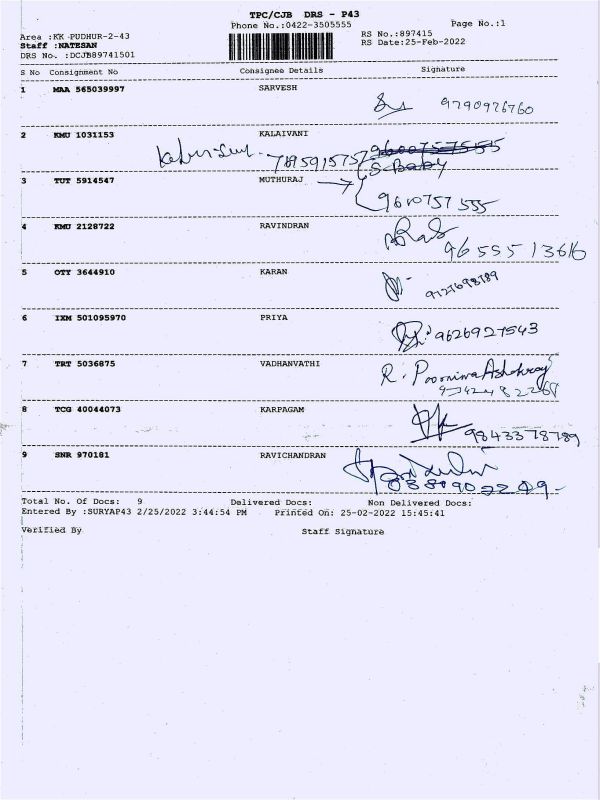 TPC/CJB DRS - P43
Phone No.:0422-3505555
Page No.:1
Area :KK-PUDHUR-2-43
RS No.:897415
Staff :NATESAN
RS Date:25-Feb-2022
DRS No. :DCJB89741501
S No Consignment No Consignee Details Signature
1 MAA 565039997 SARVESH
9790976760
2 KMU 1031153 KALAIVANI
S. Baby
3 TUT 5914547 MUTHURAJ
9610757555
4 KMU 2128722 RAVINDRAN
9655513616
5 OTY 3644910 KARAN
6 IXM 501095970 PRIYA
9626927543
7 TRT 5036875 VADHANVATHI
R. Poornima Ashokraj
8 TCG 40044073 KARPAGAM
9843378789
9 SNR 970181 RAVICHANDRAN
Total No. Of Docs: 9 Delivered Docs: Non Delivered Docs:
Entered By :SURYAP43 2/25/2022 3:44:54 PM Printed On: 25-02-2022 15:45:41
Verified By Staff Signature